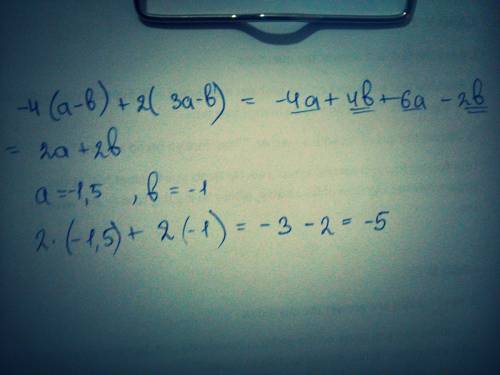 -4(a-b)+2(3a-b) = -4a+4b+6a-2b
= 2a+2b
a=-1,5 , b=-1
2·(-1,5)+2(-1)=-3-2=-5